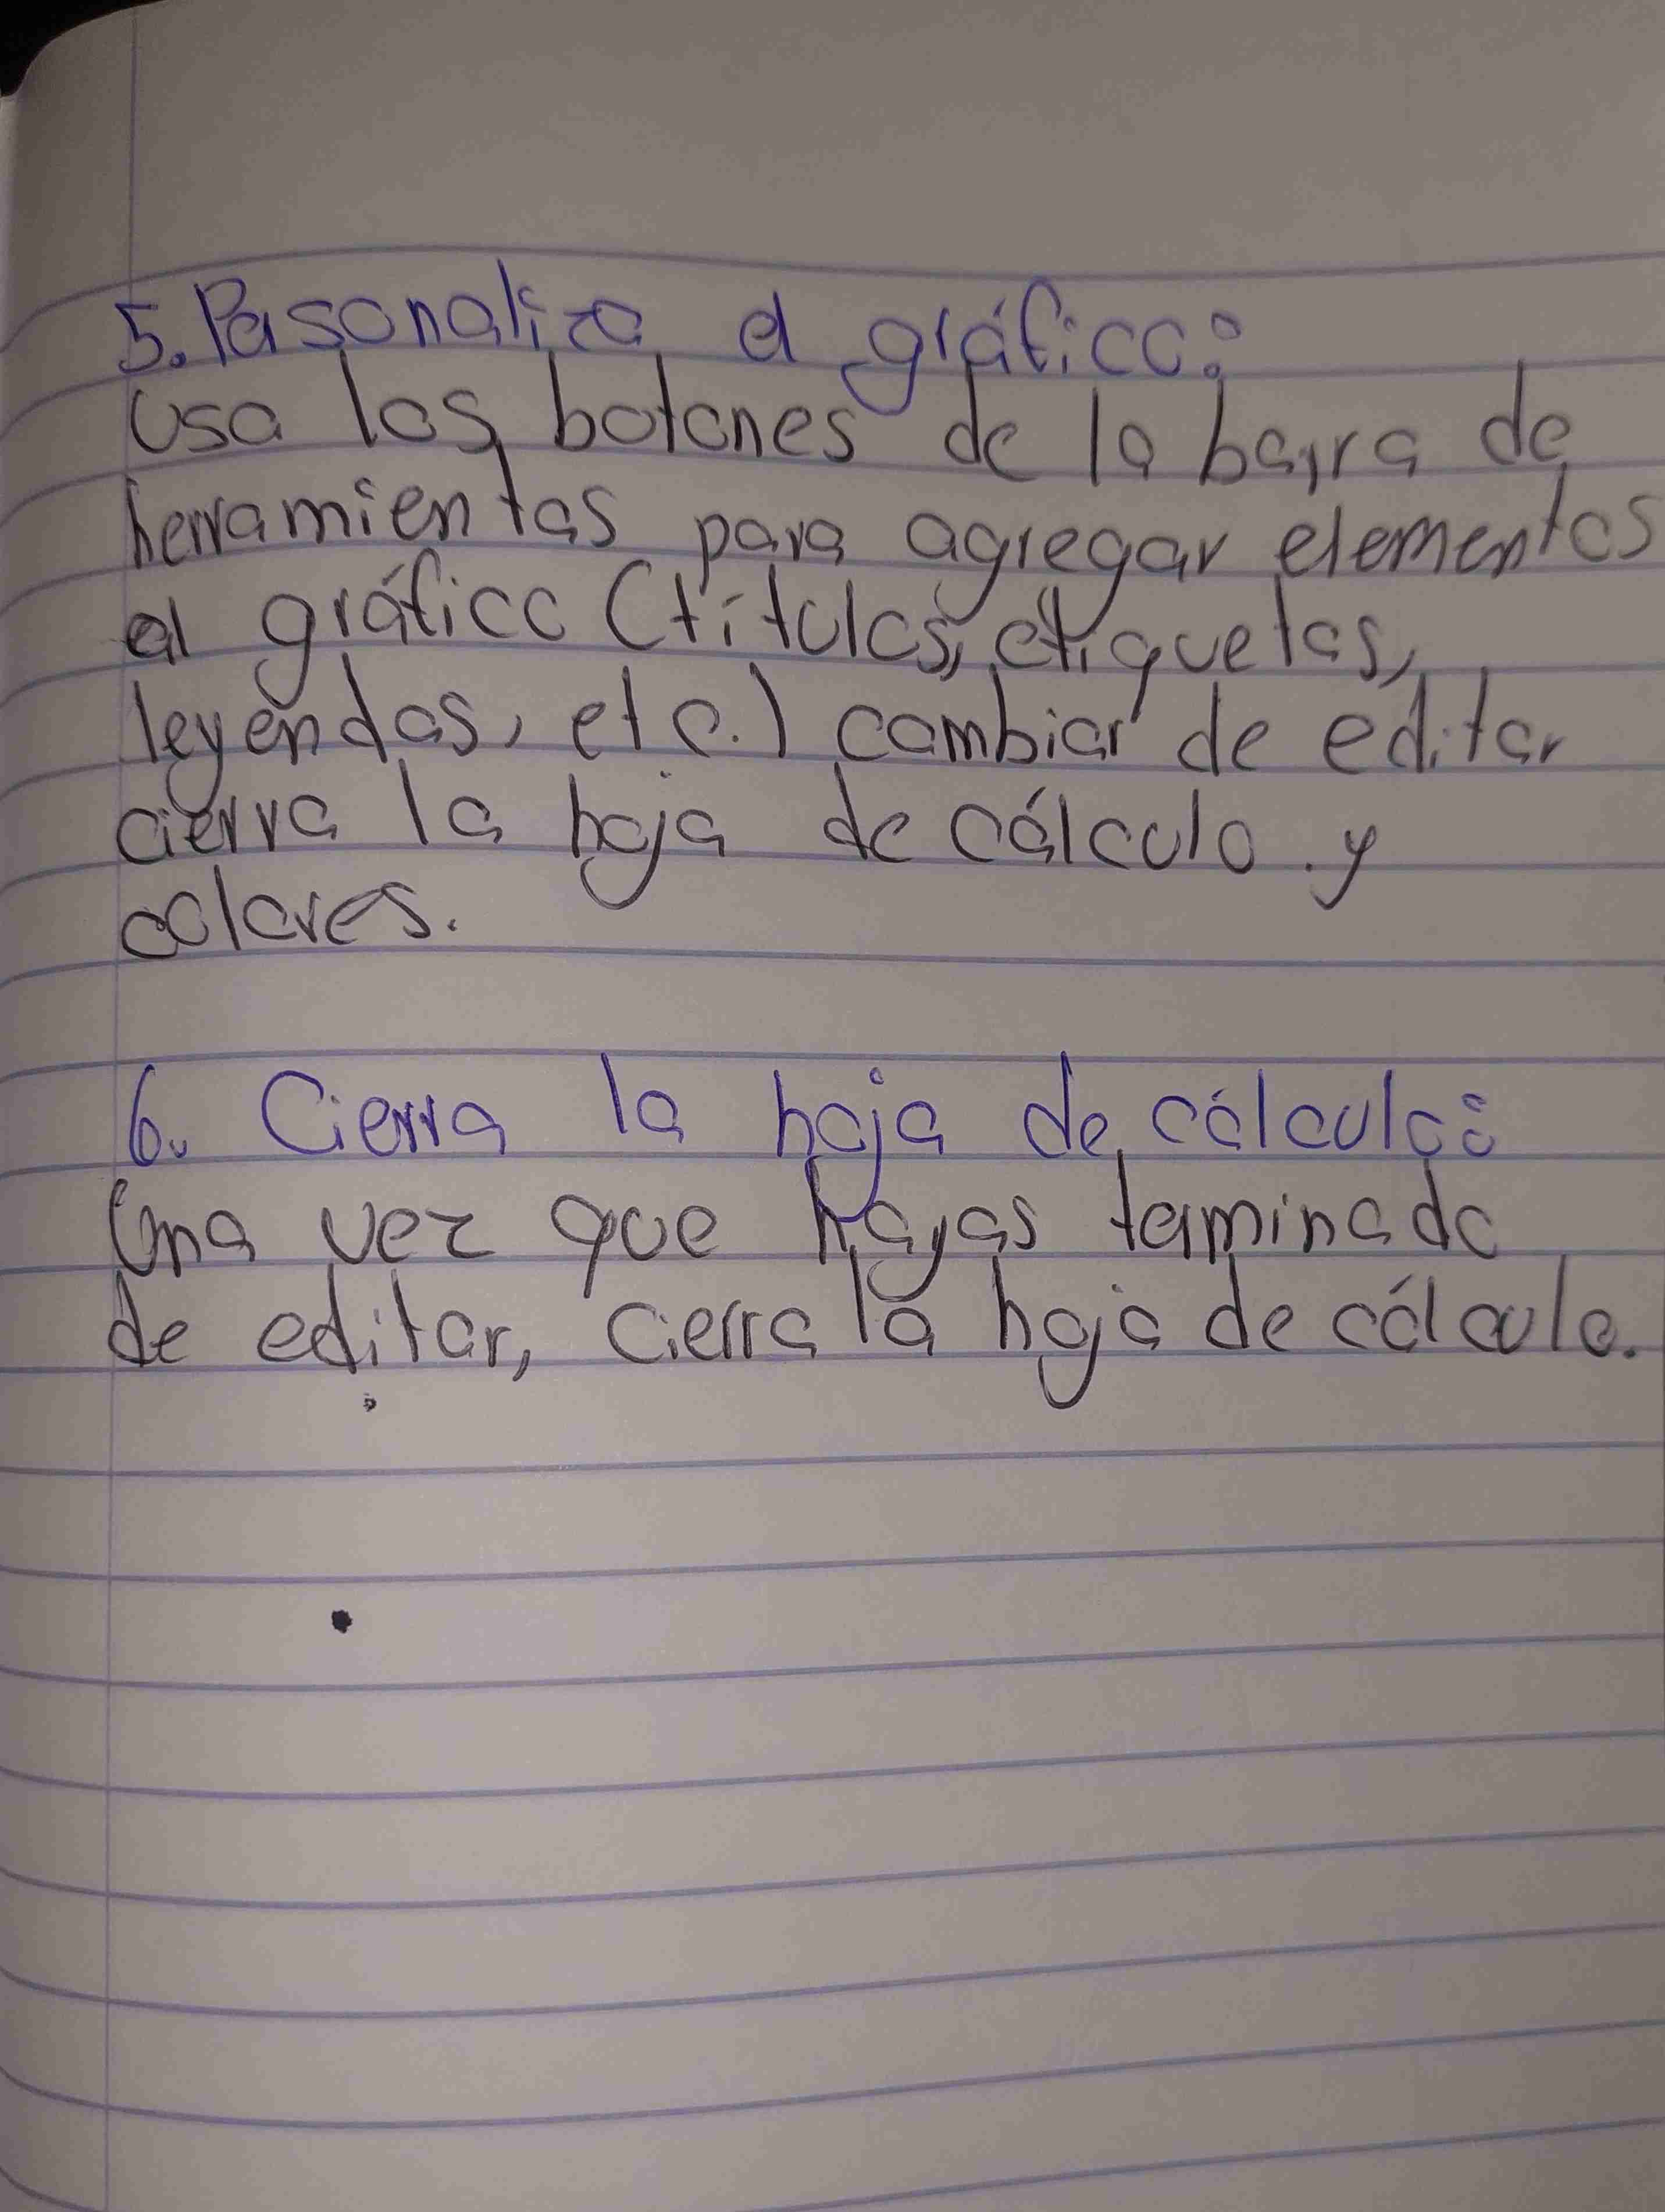 5. Personaliza el gráfico:
Usa los botones de la barra de
herramientas para agregar elementos
al gráfico (títulos, etiquetas,
leyendas, etc.) cambiar de editar
cierra la hoja de cálculo y
colores.
6. Cierra la hoja de cálculo:
Una vez que hayas terminado
de editar, cierra la hoja de cálculo.